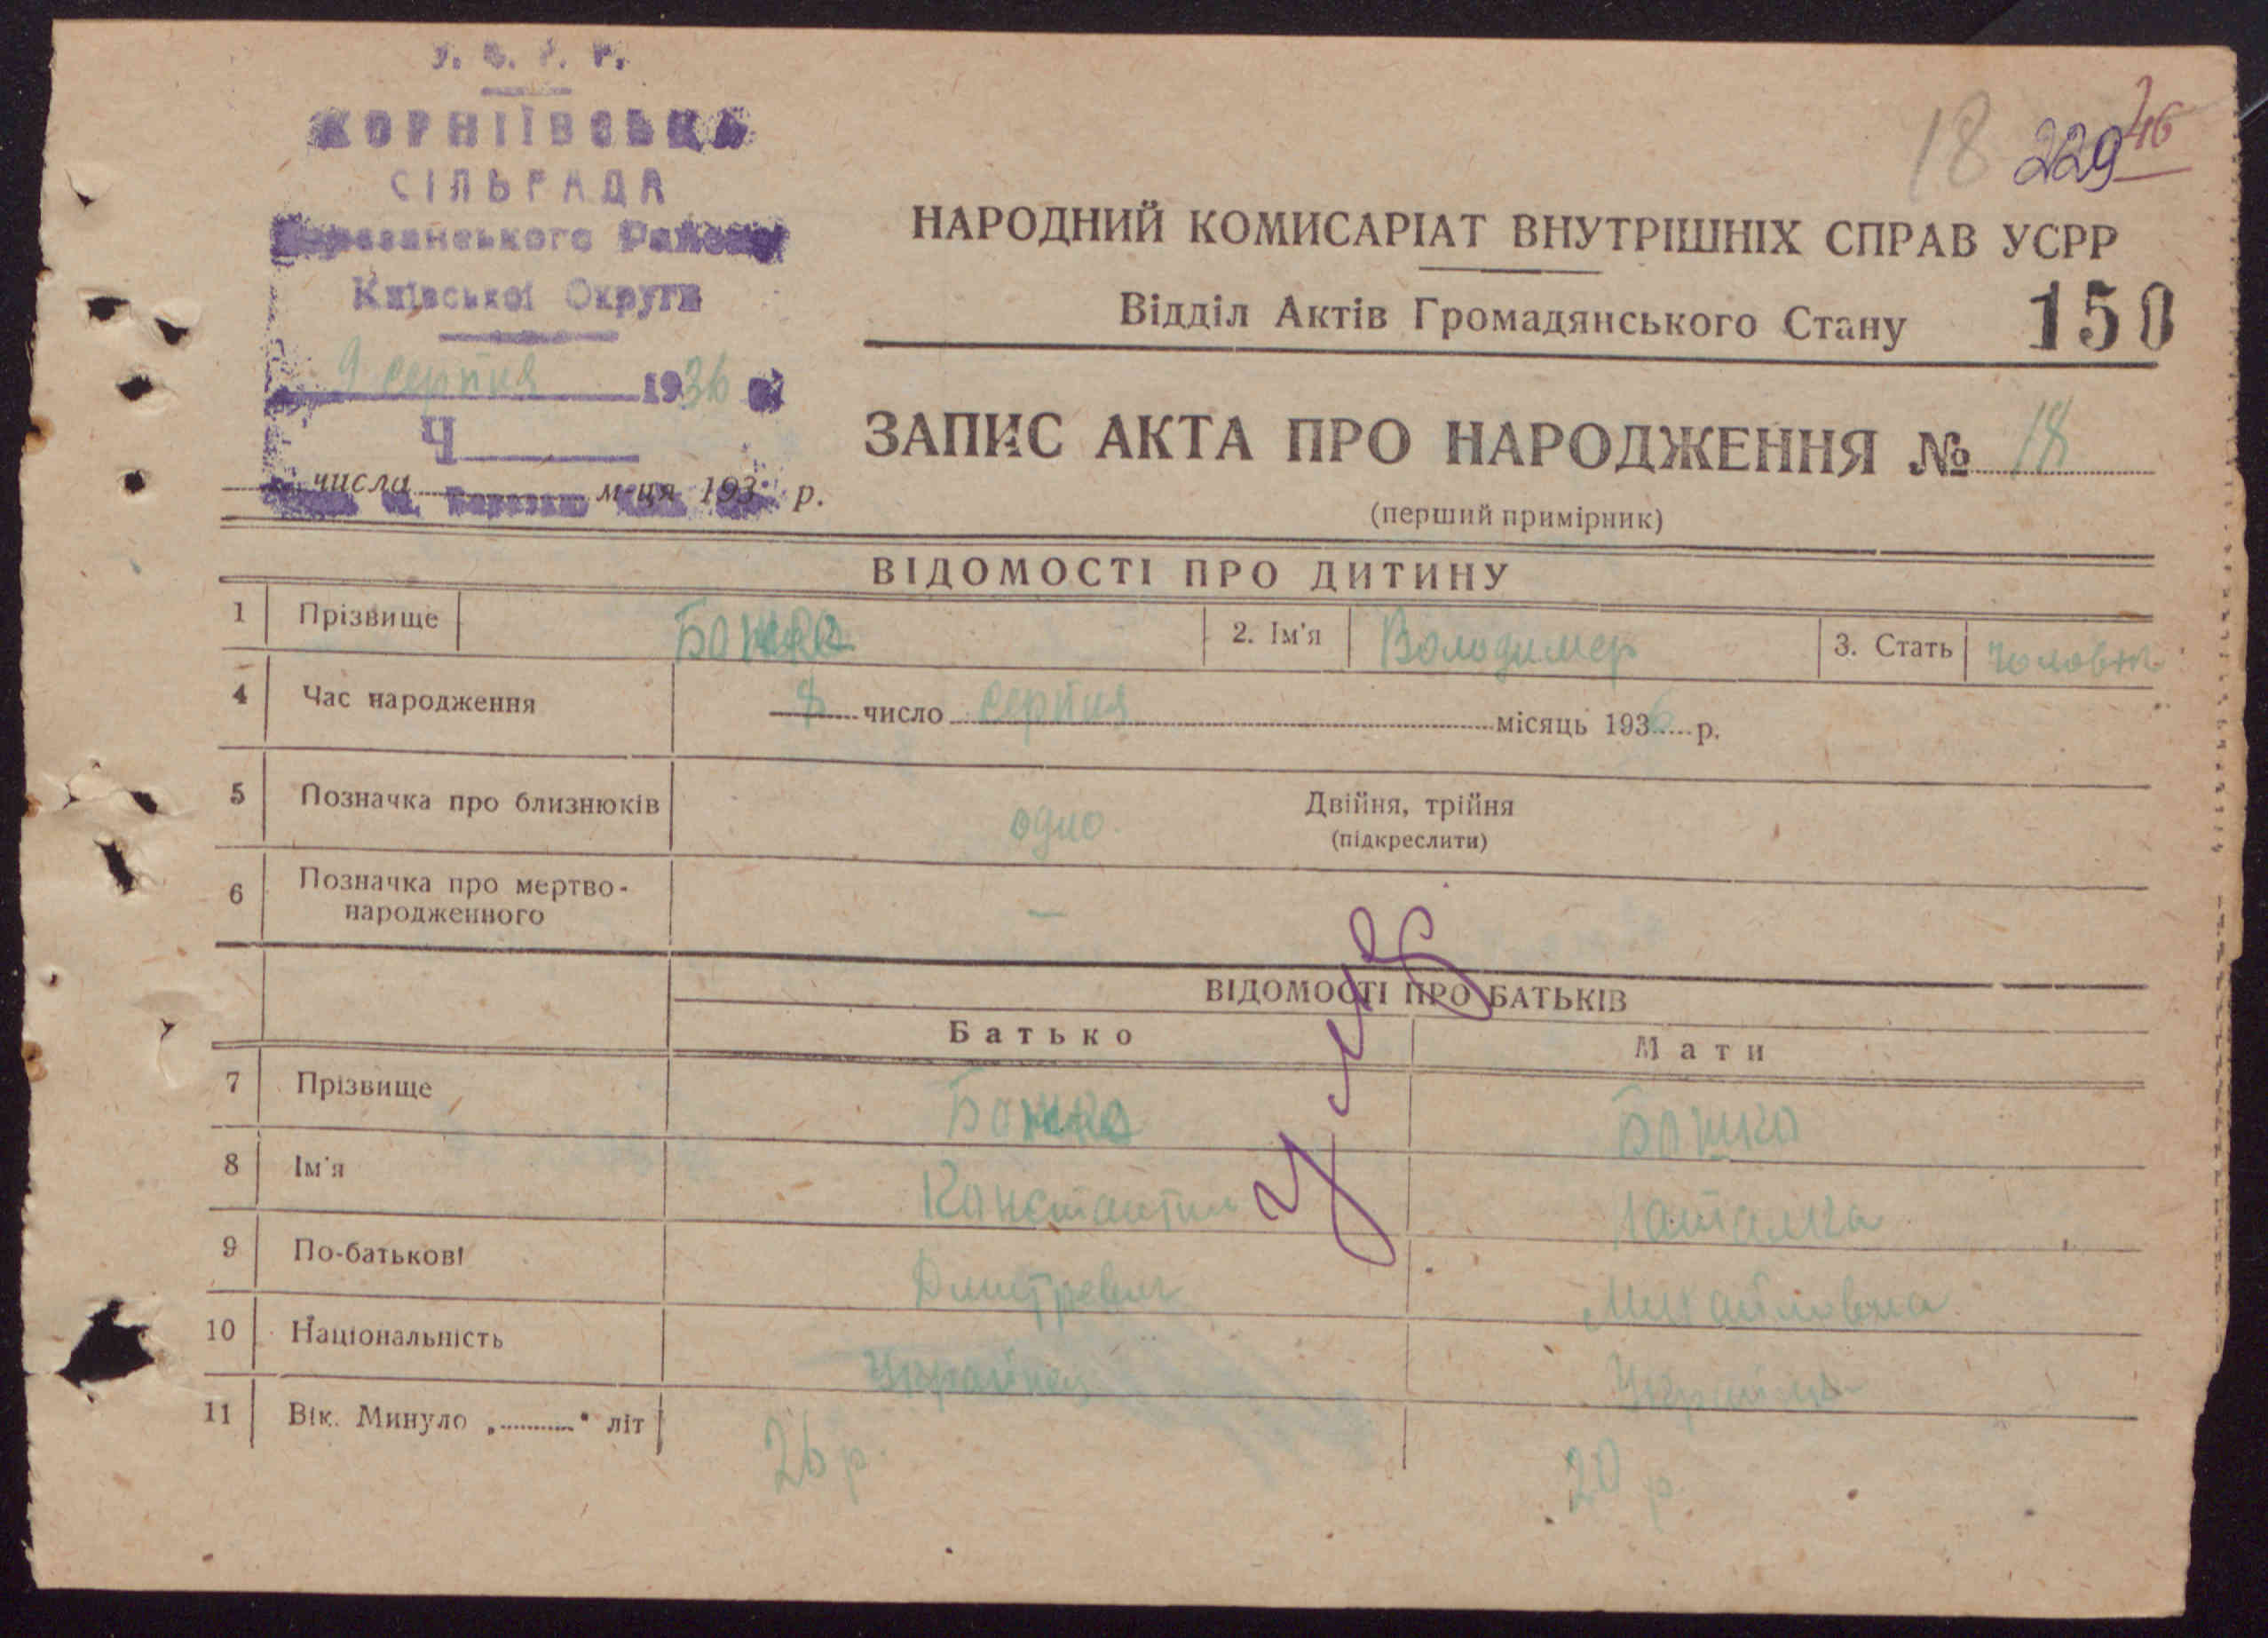 У. С. Р. Р.
КОРНІЇВСЬКА
СІЛЬРАДА
Березанського Району
Київської Округи
9 серпня 1936
Ч
числа м-ця 193 р.
18 229 46
НАРОДНИЙ КОМИСАРІАТ ВНУТРІШНІХ СПРАВ УСРР
Відділ Актів Громадянського Стану 150
ЗАПИС АКТА ПРО НАРОДЖЕННЯ № 18
(перший примірник)
ВІДОМОСТІ ПРО ДИТИНУ
1 Прізвище Божко 2. Ім'я Володимер 3. Стать
4 Час народження 8 число серпня місяць 1936 р.
5 Позначка про близнюків одно Двійня, трійня
(підкреслити)
6 Позначка про мертво-
народженного —
ВІДОМОСТІ ПРО БАТЬКІВ
Батько Мати
7 Прізвище Божко Божко
8 Ім'я Константин
9 По-батькові Дмитревич Михайловна
10 Національність
11 Вік. Минуло „ " літ 26 р. 20 р.